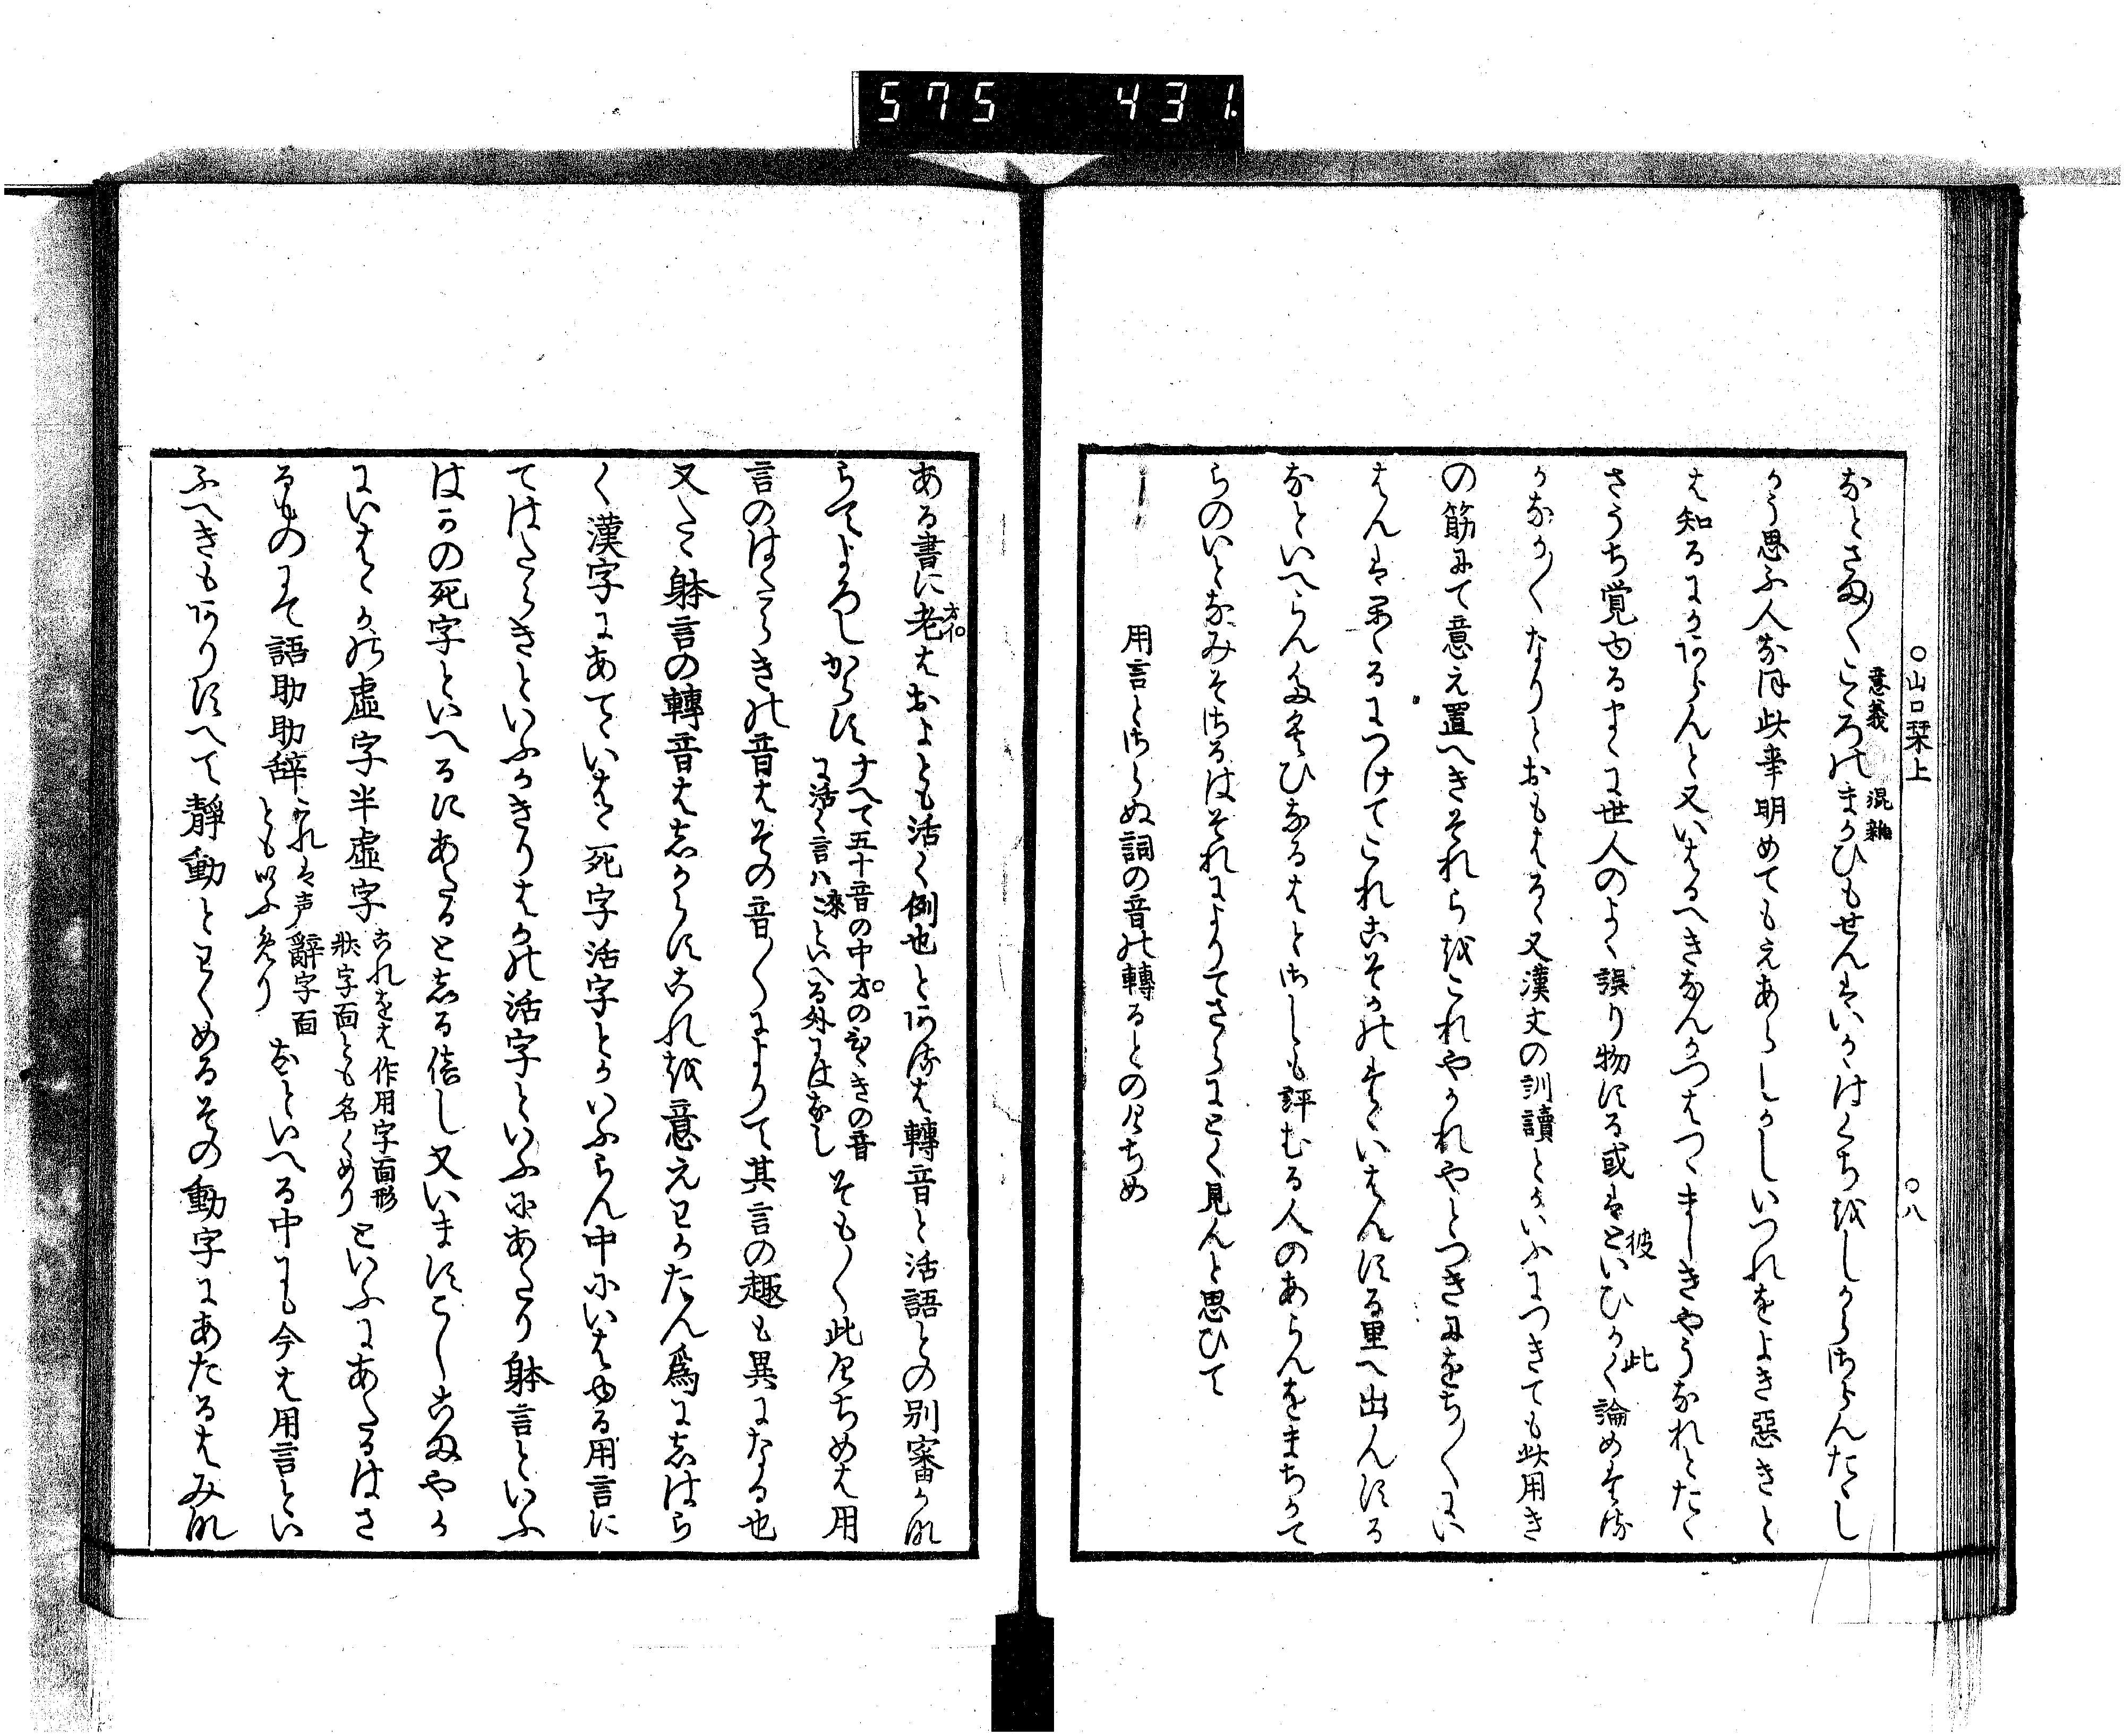 575 431.
○山口栞上 ○八
なとさま〳〵こゝろのまかひもせんはいかゝはくちをしからさらんたゝし
意義 混雑
かう思ふ人なほ此事明めてもえあらしかしいつれをよき惡きと
は知るにかあらんと又いはるへきなんかつはつゝましきやうなれとたゝ
さうち覚ゆるまゝに世人のよく誤り物にる或はといひかく論めする
彼 此
かなか〳〵なりとおもはるゝ又漢文の訓讀とかいふにつきても此用き
の筋にて意え置へきそれらをこれやかれやとつきにをち〳〵にい
はんはるにつけてこれこそかのすゝいはんにる里へ出んにる
なといへらんたくひなるはとさしも評むる人のあらんをまちかて
らのいとなみそさるはそれによりてさらにとく見んと思ひて
一 用言とさらぬ詞の音の轉るとのけちめ
ある書に老はおよとも活く例也とあるは轉音と活語との別審かな
オイ
らてよろしからす
すへて五十音の中オのひゝきの音
に活く言ハ來こといへる外にはなし
そも〳〵此けちめは用
言のはたらきの音はその音〳〵によりて其言の趣も異になる也
又たゝ躰言の轉音はしからすこれを意えわかたん爲にしはら
く漢字にあてゝいはゝ死字活字とかいふらん中にいはゆる用言に
てはたらきといふかきりはかの活字といふにあたり躰言といふ
はかの死字といへるにあたるとしる倍し又いますこしこまやか
にいはゝかの虚字半虚字
これをは作用字面形
狀字面とも名くめり
といふにあたるはさ
るものにて語助助辞
これは声辭字面
ともいふめり
なといへる中にも今は用言とい
ふへきもありすへて靜動とわくめるその動字にあたるはみな